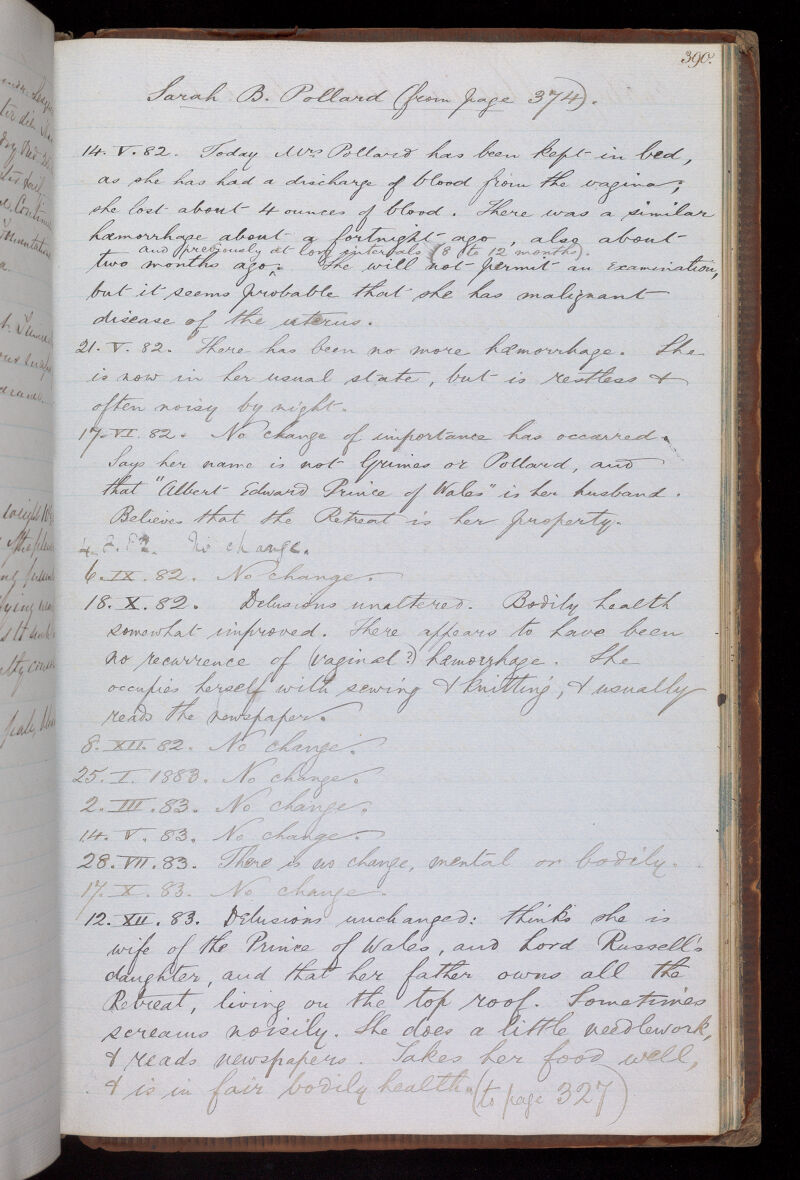 390.
Sarah B. Pollard (from page 374).
14. V. 82. Today Mrs Pollard has been kept in bed,
as she has had a discharge of blood from the vagina;
she lost about 4 ounces of blood. There was a similar
hæmorrhage about a fortnight ago, also about
and previously at long intervals (8 to 12 months).
two months ago. She will not permit an examination,
but it seems probable that she has malignant
disease of the uterus.
21. V. 82. There has been no more hæmorrhage. She
is now in her usual state, but is restless &
often noisy by night.
17. VI. 82. No change of importance has occurred.
Says her name is not Grimes or Pollard, and
that "Albert Edward Prince of Wales" is her husband.
Believes that the Retreat is her property.
4. 8. 82. No change.
6. IX. 82. No change.
18. X. 82. Delusions unaltered. Bodily health
somewhat improved. There appears to have been
no recurrence of (vaginal?) hæmorrhage. She
occupies herself with sewing & knitting, & usually
reads the newspaper.
8. XII. 82. No change.
25. I. 1883. No change.
2. III. 83. No change.
14. V. 83. No change.
28. VII. 83. There is no change, mental or bodily.
17. X. 83. No change.
12. XII. 83. Delusions unchanged: thinks she is
wife of the Prince of Wales, and Lord Russell's
daughter, and that her father owns all the
Retreat, living on the top roof. Sometimes
screams noisily. She does a little needlework,
& reads newspapers. Takes her food well,
& is in fair bodily health. (to page 327)